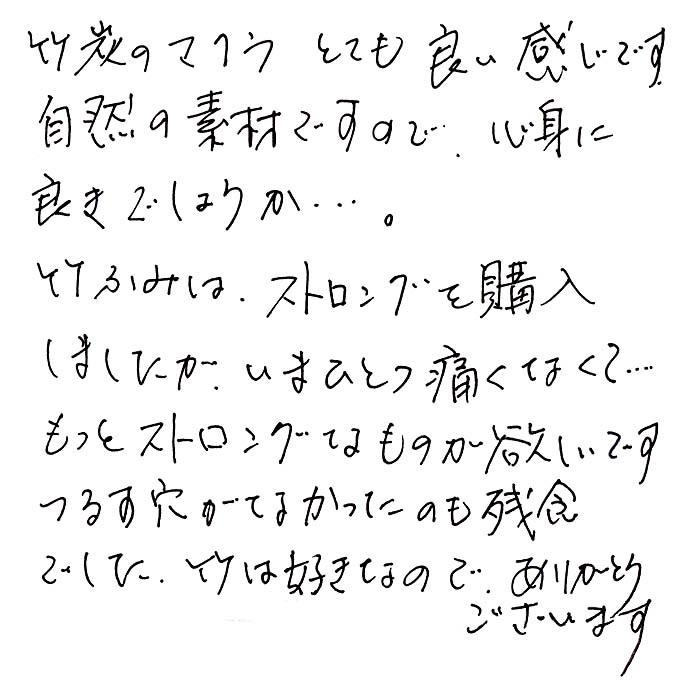 竹炭のマクラ とても良い感じです
自然の素材ですので、心身に
良さでしょうか…。
竹ふみは、ストロングを購入
しましたが、いまひとつ痛くなくて…
もっとストロングなものが欲しいです
つるす穴がなかったのも残念
でした。竹は好きなので、ありがとう
ございます